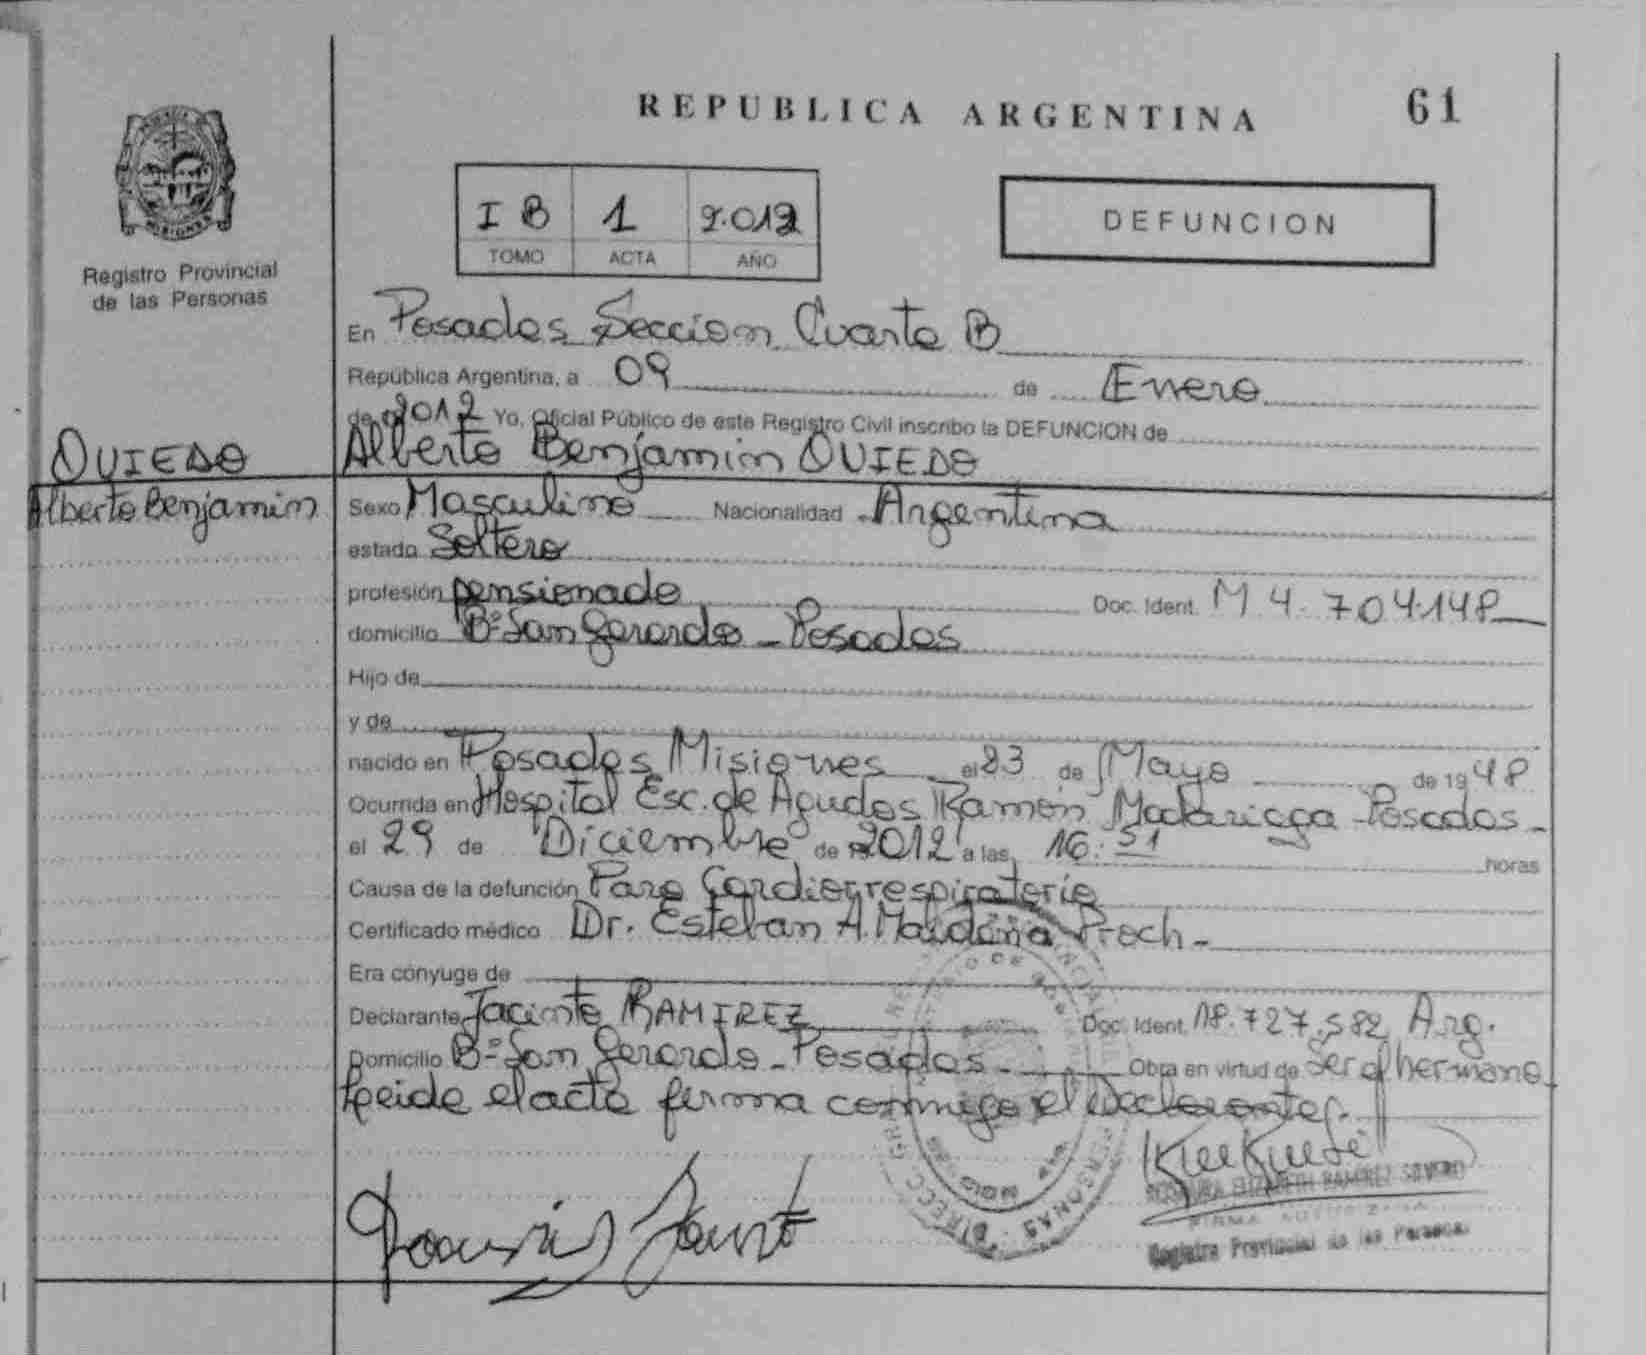 REPUBLICA ARGENTINA
61
I B 1 2.012
TOMO ACTA AÑO
DEFUNCION
Registro Provincial
de las Personas
En Posadas Seccion Cuarta B
República Argentina, a 09 de Enero
de 2012 Yo, Oficial Público de este Registro Civil inscribo la DEFUNCION de
OVIEDO
Alberto Benjamin OVIEDO
Alberto Benjamin
Sexo Masculino Nacionalidad Argentina
estado Soltero
profesión pensionado Doc. Ident. M 4.704.148
domicilio Bº San Gerardo - Posadas
Hijo de
y de
nacido en Posadas Misiones el 23 de Mayo de 1948
Ocurrida en Hospital Esc. de Agudos Ramón Madariaga Posadas -
el 29 de Diciembre de 2012 a las 16:51 horas
Causa de la defunción Paro Cardiorrespiratorio
Certificado médico Dr. Esteban A. Proch -
Era cónyuge de
Declarante Jacinto RAMIREZ Doc. Ident. 18.727.582 Arg.
Domicilio Bº San Gerardo - Posadas - Obra en virtud de ser el hermano
Leida el acta firma conmigo el Declarante.
ELIZABETH RAMIREZ
FIRMA AUTORIZADA
Registro Provincial de las Personas